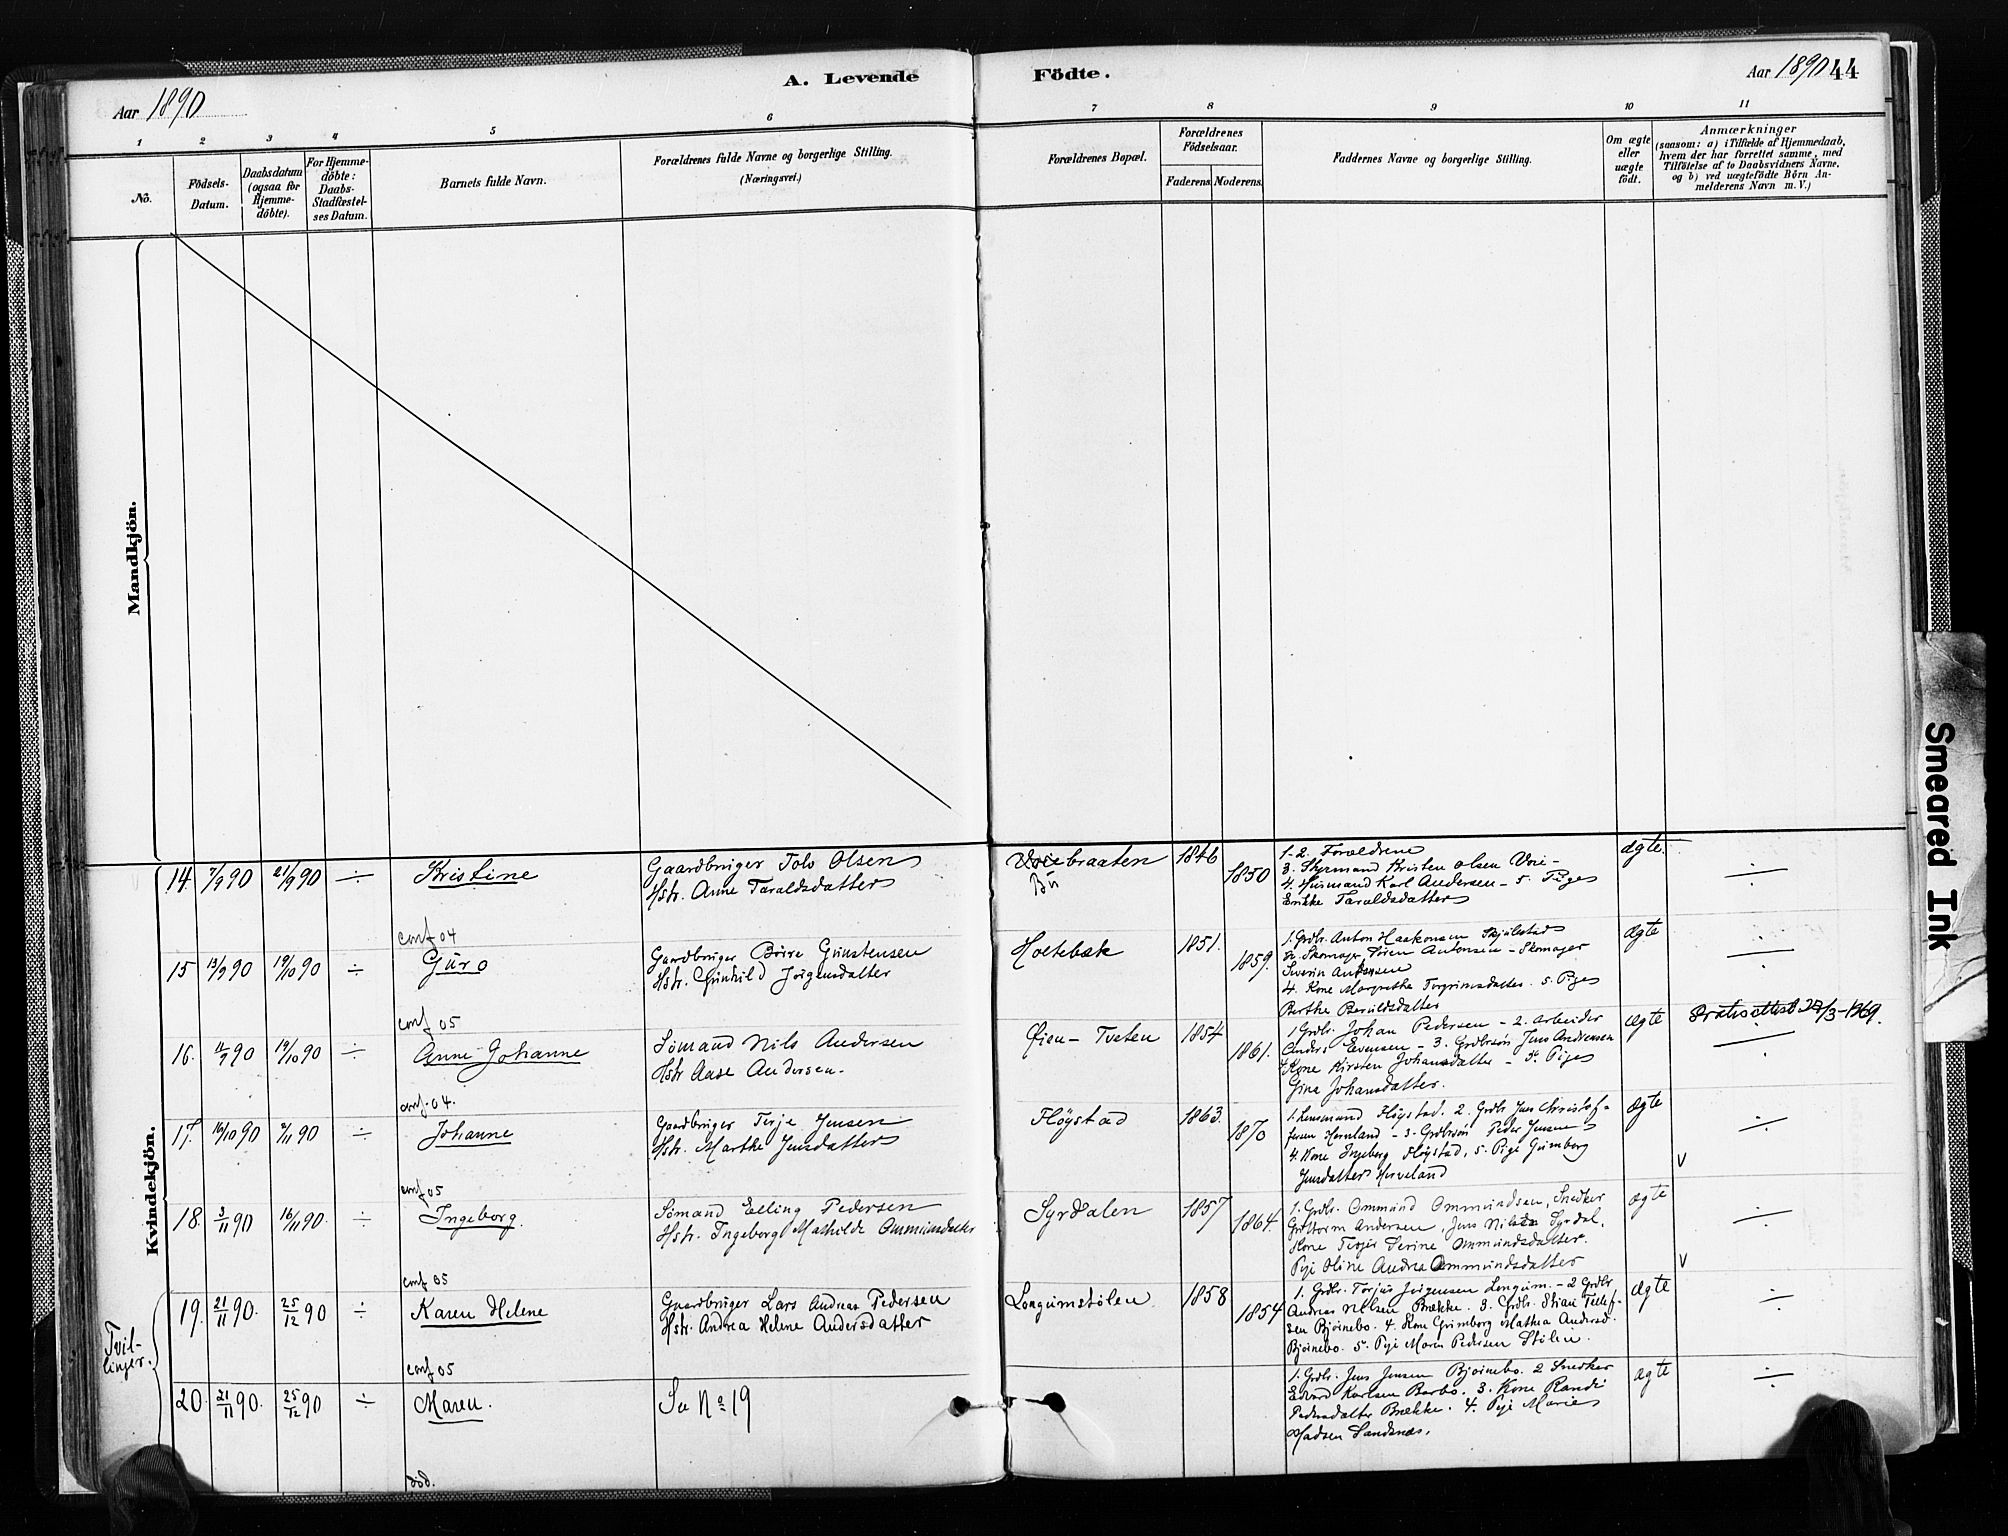 A. Levende Födte.
Aar 1890
Aar 1890 44
1 2 3 4 5 6 7 8 9 10 11
No.
Födsels-Datum.
Daabsdatum (ogsaa for Hjemmedöbte).
For Hjemmedöbte: Daabs-Stadfæstelses Datum.
Barnets fulde Navn.
Forældrenes fulde Navne og borgerlige Stilling.
(Næringsvei.)
Forældrenes Bopæl.
Forældrenes Födselsaar.
Faderens. Moderens.
Faddernes Navne og borgerlige Stilling.
Om ægte eller uægte födt.
Anmærkninger
(saasom: a) i Tilfælde af Hjemmedaab, hvem der har forrettet samme, med Tilföielse af to Daabsvidners Navne, og b) ved uægtefödte Börn Anmelderens Navn m. V.)
Mandkjön.
Kvindekjön.
14. 7/9 90 21/9 90 ÷ Kristine
Gaardbruger Tolv Olsen
Hstr. Anne Taraldsdatter
Voiebraaten
1846 1850
1-2. Forældrene
3. Styrmand Kristen Olsen Voie-
4. Husmand Karl Andersen - 5. Pige
Taraldsdatter
ægte. ÷
conf 04
15 13/9 90 19/10 90 ÷ Guro
Gaardbruger Börre Gunstensen
Hstr. Gunhild Jörgensdatter
Holtebæk
1851. 1859.
1. Grdbr. Anton Haakonsen
2. Skomager Sören Antonsen - Skomager
Severin
4. Kone Margrethe Torgrimsdatter. 5. Pige
Berthe
ægte ÷
conf 05
16. 90 19/10 90 ÷ Anne Johanne
Sömand Nils Andersen
Hstr Aase Andersen.
Öien - Tveten
1854 1861.
1. Grdbr. Johan Pedersen - 2. Arbeider
Anders Evensen - 3. Grdbrsön Jens Andreasen
4 Kone Kirsten Johansdatter - 5. Pige
Gina Johansdatter.
ægte ÷
conf. 04.
17. 16/10 90 90 ÷ Johanne
Gaardbruger Terje Jensen
Hstr. Marthe Jensdatter
Flöystad
1863. 1870
1. Lensmand Flöystad. 2. Grdbr Jens Christof-
fersen - 3. Grdbrsön Peder Jensen
4. Kone Ingeborg Flöystad, 5. Pige Gunborg
Jensdatter
ægte ÷
V
conf 05
18. 3/11 90 16/11 90. ÷ Ingeborg.
Sömand Elling Pedersen
Hstr. Ingeborg Mathilde Ommundsdatter
Syrdalen
1857 1864.
1. Grdbr. Ommund Ommundsen, Snedker
Andersen, Jens Nilsen Syrdal.
Kone Serine Ommundsdatter.
Pige Oline Andrea Ommundsdatter
ægte ÷
V
conf 05
Tvil-
linger.
19. 21/11 90. 25/12 90 ÷ Karen Helene
Gaardbruger Lars Andreas Pedersen
Hstr. Andrea Helene Andersdatter
Longumstölen
1858 1854
1. Grdbr. Torjus Jörgensen Longum. - 2 Grdbr
Andreas Nilsen Brække. 3. Grdbr. Stian Tellef-
sen Björnebo. 4. Kone Gunborg Mathea Andersd.
Björnebo. 5. Pige Maren Pedersen Stölen.
ægte ÷
conf 05
20. 21/11 90. 25/12 90 ÷ Maren.
Se No 19
1. Grdbr. Jens Jensen Björnebo. 2 Snedker
Edvard Karlsen Barbo. 3. Kone Randi
Pedersdatter Brække. 4. Pige Marie
Madsen Sandnæs.
ægte ÷
död.
Smeared Ink